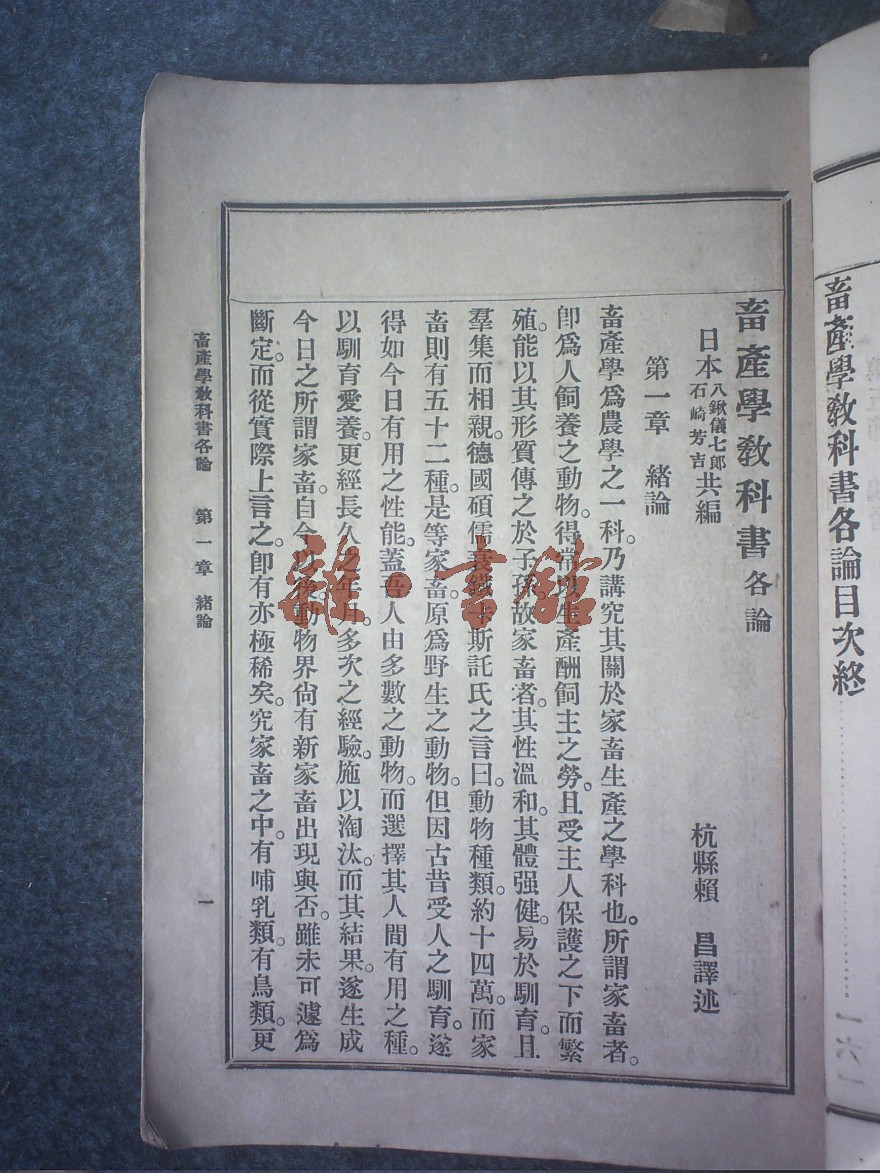 畜產學教科書各論目次終
一六一
畜產學教科書各論
日本八鍬儀七郎石崎芳吉共編
杭縣賴 昌譯述
第一章 緒論
畜產學爲農學之一科。乃講究其關於家畜生產之學科也。所謂家畜者。
卽爲人飼養之動物。得常以生產酬飼主之勞。且受主人保護之下而繁
殖。能以其形質傳之於子孫。故家畜者。其性溫和。其體强健。易於馴育。且
羣集而相親。德國碩儒斯託氏之言曰。動物種類。約十四萬。而家
畜則有五十二種。是等家畜。原爲野生之動物。但因古昔受人之馴育。遂
得如今日有用之性能。蓋吾人由多數之動物。而選擇其人間有用之種。
以馴育愛養。更經長久之年月。多次之經驗。施以淘汰。而其結果。遂生成
今日之所謂家畜。自今以後。動物界尙有新家畜出現與否。雖未可遽爲
斷定。而從實際上言之。卽有亦極稀矣。究家畜之中。有哺乳類。有鳥類。更
畜產學教科書各論 第一章 緒論
一
雜·書館